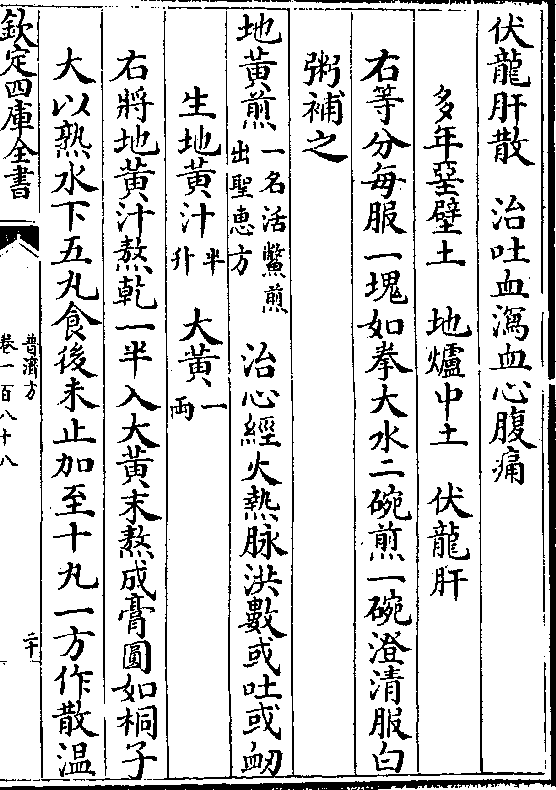 伏龍肝散　治吐血瀉血心腹痛
多年堊壁土　地爐中土　伏龍肝
右等分每服一塊如拳大水二碗煎一碗澄清服白
粥補之
地黄煎一名活鱉煎出聖惠方　治心經火熱脉洪數或吐或衂
生地黄汁半升　大黄一両
右將地黄汁熬乾一半入大黄末熬成膏圓如桐子
大以熟水下五丸食後未止加至十丸一方作散温
欽定四庫全書
普濟方
卷一百八十八
二十